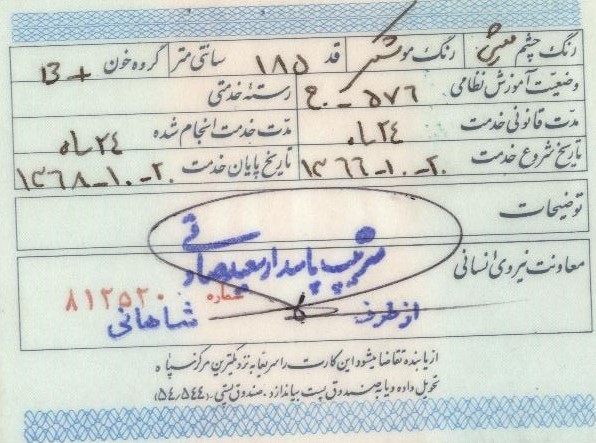 رنگ چشم میشی رنگ مو مشکی قد ۱۸۵ سانتی متر گروه خون B+
وضعیت آموزش نظامی ۵۷۶ - ج رسته خدمتی
مدت قانونی خدمت ۲۴ ماه مدت خدمت انجام شده ۲۴ ماه
تاریخ شروع خدمت ۲۰-۱۰-۱۳۶۶ تاریخ پایان خدمت ۲۰-۱۰-۱۳۶۸
توضیحات
معاونت نیروی انسانی
سرتیپ پاسدار سعید صادقی
شماره ۸۱۲۵۲۰
از طرف شاهانی
از یابنده تقاضا میشود این کارت را سریعا به نزدیکترین مرکز سپاه
تحویل داده و یا به صندوق پست بیاندازد. صندوق پستی (۵۴/۵۴۴)